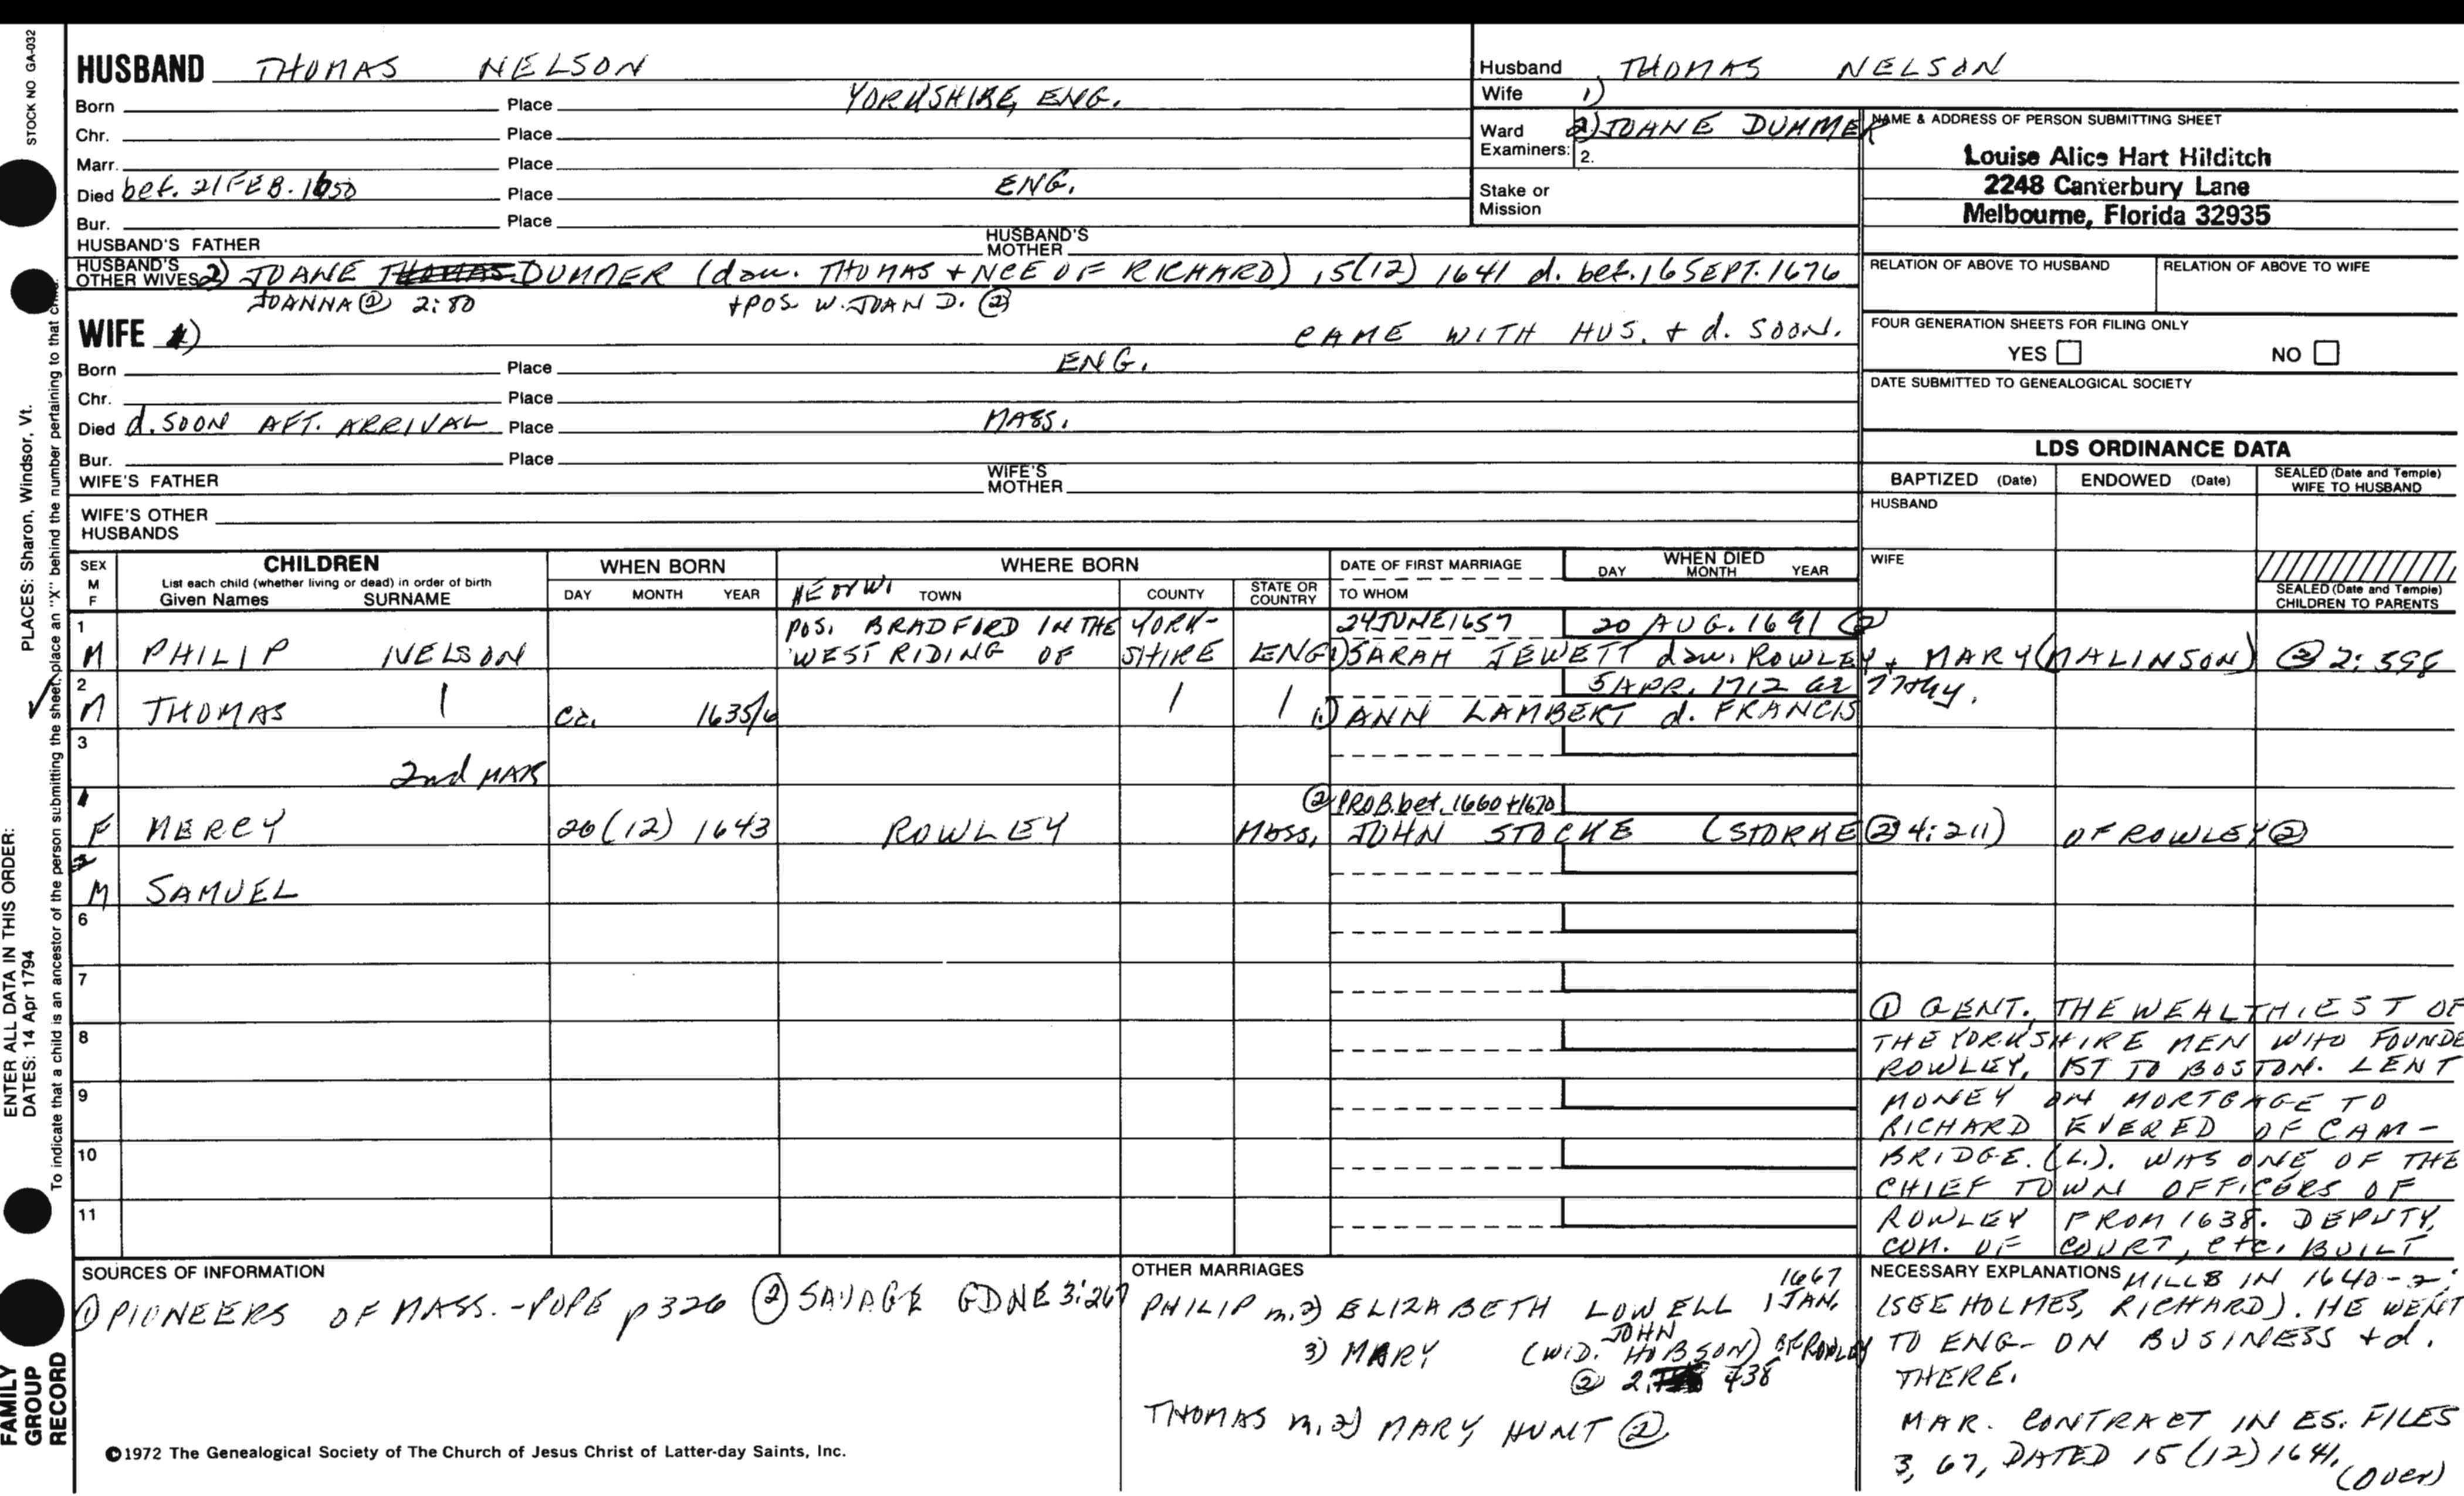 STOCK NO GA-032
HUSBAND THOMAS NELSON
Born Place YORKSHIRE, ENG.
Chr. Place
Marr. Place
Died bef. 21 FEB. 1650 Place ENG.
Bur. Place
HUSBAND'S FATHER HUSBAND'S MOTHER
HUSBAND'S OTHER WIVES 2) JOANE DUMMER (dau. THOMAS + NCE OF RICHARD) 15(12) 1641 d. bef. 16 SEPT. 1676
JOANNA ② 2:80 + POS. W. JOAN D. ②
WIFE 1) CAME WITH HUS. + d. SOON.
Born Place ENG.
Chr. Place
Died d. SOON AFT. ARRIVAL Place MASS.
Bur. Place
WIFE'S FATHER WIFE'S MOTHER
WIFE'S OTHER HUSBANDS
Husband THOMAS NELSON
Wife 1)
Ward Examiners: 2) JOANE DUMMER
2.
Stake or Mission
NAME & ADDRESS OF PERSON SUBMITTING SHEET
Louise Alice Hart Hilditch
2248 Canterbury Lane
Melbourne, Florida 32935
RELATION OF ABOVE TO HUSBAND RELATION OF ABOVE TO WIFE
FOUR GENERATION SHEETS FOR FILING ONLY
YES NO
DATE SUBMITTED TO GENEALOGICAL SOCIETY
LDS ORDINANCE DATA
BAPTIZED (Date) ENDOWED (Date) SEALED (Date and Temple) WIFE TO HUSBAND
HUSBAND
WIFE
SEALED (Date and Temple) CHILDREN TO PARENTS
SEX M F
CHILDREN
List each child (whether living or dead) in order of birth
Given Names SURNAME
WHEN BORN
DAY MONTH YEAR
WHERE BORN
TOWN COUNTY STATE OR COUNTRY
DATE OF FIRST MARRIAGE
TO WHOM
WHEN DIED
DAY MONTH YEAR
1 POS. BRADFORD IN THE YORK- 24 JUNE 1657 20 AUG. 1691 ②
M PHILIP NELSON WEST RIDING OF SHIRE ENG 1) SARAH JEWETT dau. ROWLEY + MARY (MALINSON) ② 2:598
2 5 APR. 1712 ae 77thy.
M THOMAS ca. 1635/6 1) ANN LAMBERT d. FRANCIS
3
2nd MAR
② PROB. bet. 1660 + 1670
F MERCY 26 (12) 1643 ROWLEY Mass, JOHN STOCKE (STORKE ② 4:211) OF ROWLEY ②
M SAMUEL
6
7
8
9
10
11
① GENT., THE WEALTHIEST OF
THE YORKSHIRE MEN WHO FOUNDE
ROWLEY, 1ST TO BOSTON. LENT
MONEY ON MORTGAGE TO
RICHARD EVERED OF CAM-
BRIDGE. (L.). WAS ONE OF THE
CHIEF TOWN OFFICERS OF
ROWLEY FROM 1638. DEPUTY,
COM. OF COURT, etc. BUILT
NECESSARY EXPLANATIONS MILLS IN 1640-2;
(SEE HOLMES, RICHARD). HE WENT
TO ENG. ON BUSINESS + d.
THERE.
MAR. CONTRACT IN ES. FILES
3, 67, DATED 15 (12) 1641.
(over)
SOURCES OF INFORMATION
① PIONEERS OF MASS. - POPE p 326 ② SAVAGE GDNE 3:267
OTHER MARRIAGES
PHILIP m. 2) ELIZABETH LOWELL 1 JAN. 1667
3) MARY (WID. JOHN HOBSON) OF ROWLEY
② 2: 438
THOMAS m. 2) MARY HUNT ②
©1972 The Genealogical Society of The Church of Jesus Christ of Latter-day Saints, Inc.
FAMILY GROUP RECORD
ENTER ALL DATA IN THIS ORDER:
DATES: 14 Apr 1794
PLACES: Sharon, Windsor, Vt.
To indicate that a child is an ancestor of the person submitting the sheet, place an "X" behind the number pertaining to that child.